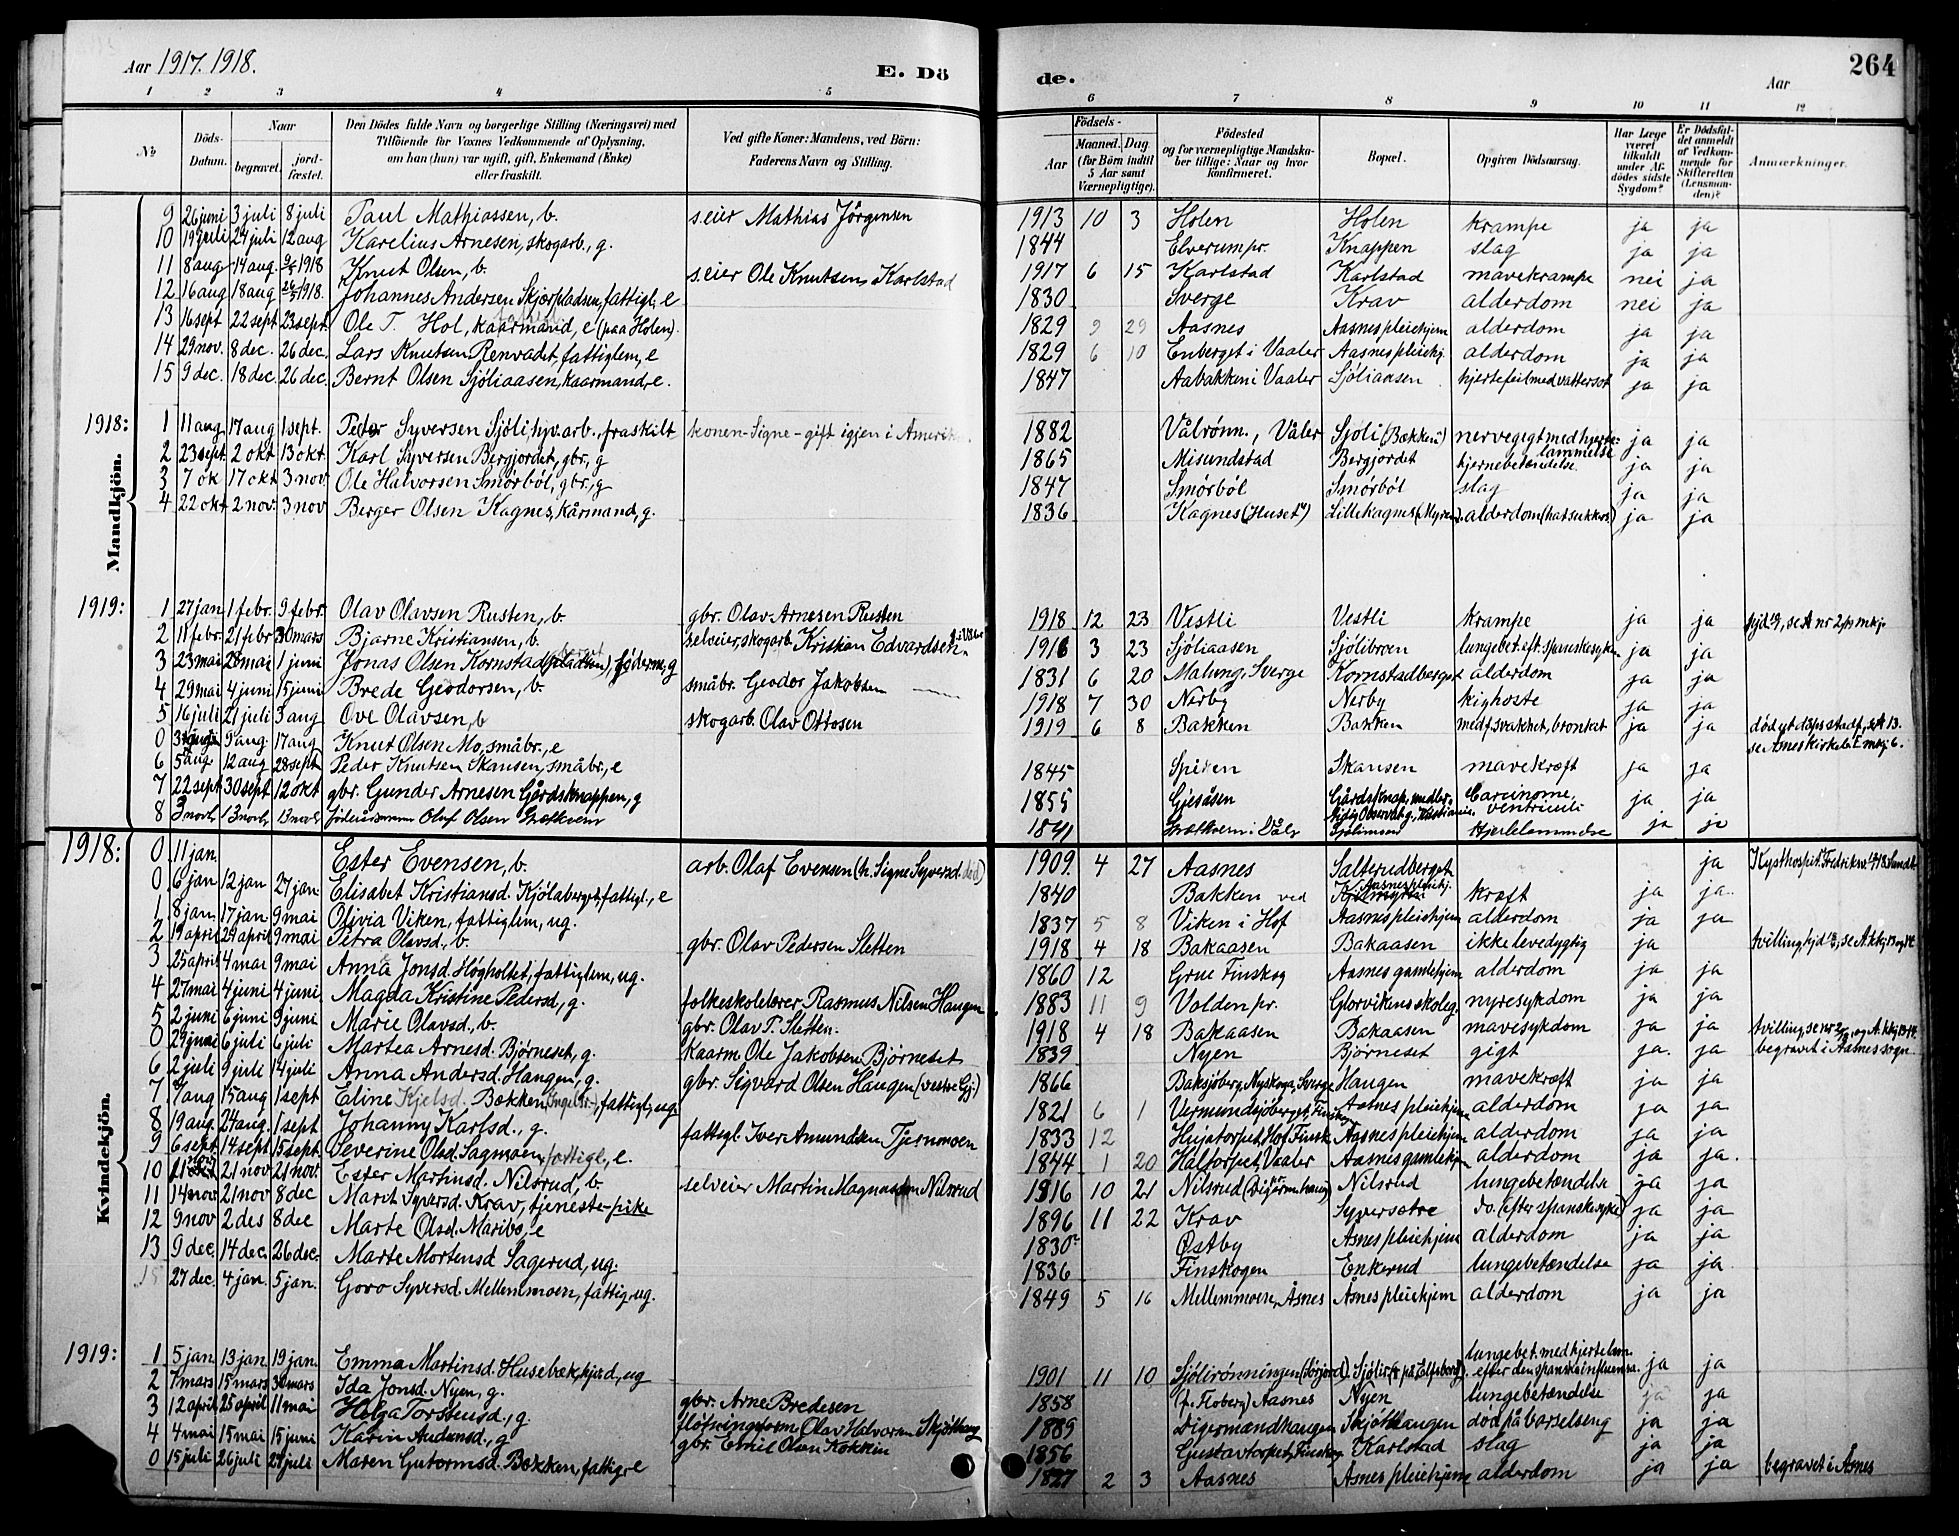 Aar 1917. 1918.
E. Dö
de.
264
Aar
1 2 3 4 5
6 7 8 9 10 11 12
No
Döds-Datum.
Naar
begravet.
jord-fæstet.
Den Dödes fulde Navn og borgerlige Stilling (Næringsvei) med
Tilföiende for Voxnes Vedkommende af Oplysning,
om han (hun) var ugift, gift, Enkemand (Enke)
eller fraskilt.
Ved gifte Koner: Mandens, ved Börn:
Faderens Navn og Stilling.
Födsels-
Aar
Maaned. Dag
(for Börn indtil
5 Aar samt
Værnepligtige).
Födested
og for værnepligtige Mandska-
ber tillige: Naar og hvor
konfirmeret.
Bopæl.
Opgiven Dödsaarsag.
Har Læge
været
tilkaldt
under Af-
dödes sidste
Sygdom?
Er Dödsfal-
det anmeldt
af Vedkom-
mende for
Skifteretten
(Lensman-
den)?
Anmærkninger.
9 26 juni 3 juli 8 juli Paul Mathiassen, b. seier Mathias Jörgensen 1913 10 3 Holen Holen krampe ja ja
10 19 juli 24 juli 12 aug Karelius Arnesen, skogarb., g. 1844 Elverum pr. Knappen slag ja ja
11 8 aug 14 aug. 1918 Knut Olsen, b. seier Ole Knutsen, Karlstad 1917 6 15 Karlstad Karlstad mavekrampe nei ja
12 16 aug 18 aug 26/5 1918. Johannes Andersen Skjærpladsen, fattigl., e 1830 Sverge Krav alderdom nei ja
13 16 sept 22 sept 23 sept. Ole T. Hol, kaarmand, e (paa Holen). 1829 9 29 Aasnes Aasnes pleiehjem alderdom ja ja
14 29 nov. 8 dec. 26 dec. Lars Knutsen Renvadet, fattiglem, e 1829 6 10 Enberget i Vaaler Aasnes pleiehj. alderdom ja ja
15 9 dec. 18 dec. 26 dec. Bernt Olsen Sjöliaasen, kaarmand, e. 1847 Aabakken i Vaaler Sjöliaasen hjertefeil med vattersot ja ja
Mandkjön.
1918:
1 11 aug 17 aug 1 sept. Peder Syversen Sjöli, hjv. arb., fraskilt konen - Signe - gift igjen i Amerika. 1882 Vålrönn., Våler Sjöli (Bækken) nervegigt med hjerte- lammelse ja ja
2 23 sept. 2 okt 13 okt. Karl Syversen Bergjordet, gbr., g 1865 Misundstad Bergjordet hjernebetændelse ja ja
3 7 ok 17 okt 3 nov Ole Halvorsen Smörböl, gbr., g 1847 Smörböl Smörböl slag ja ja
4 22 okt 2 nov. 3 nov Berger Olsen Kagnes, kårmand, g. 1836 Kagnes ("Huset") Lillekagnes (Myren). alderdom (hat sukkers.) ja ja
1919:
1 27 jan 1 febr. 9 febr. Olav Olavsen Rusten, b. gbr. Olav Arnesen Rusten 1918 12 23 Vestli Vestli krampe ja ja
2 11 febr. 21 febr 30 mars Bjarne Kristiansen, b. selveier, skogarb. Kristian Edvardsen 1916 3 23 Sjöliaasen Sjölibroen lungebet. eft. spanskesyken ja ja
3 23 mai 28 mai 1 juni Jonas Olsen Kornstad(pladsen), föderm., g 1831 6 20 Malung, Sverge Kornstadberget alderdom ja ja
4 29 mai 4 juni 15 juni Brede Geodorsen, b. småbr. Geodor Jakobsen 1918 7 30 Nerby Nerby kighoste ja ja
5 16 juli 21 juli 3 aug Ove Olavsen, b skogarb. Olav Ottosen 1919 6 8 Bakken Bakken medf. svakhet, bronkit ja ja
0 9 aug 17 aug Knut Olsen Mo, småbr., e
6 5 aug 12 aug 28 sept Peder Knutsen Skansen, småbr., e 1845 Spiken Skansen mavekræft ja ja
7 22 sept 30 sept 12 okt gbr. Gunder Arnesen Gårdsknappen, g 1855 Gjesåsen Carcinome ventriculi ja ja
8 3 novb. 13 novb. 13 novb. Olaf Olsen 1841 ja ja
Kvindekjön.
1918:
0 11 jan. Ester Evensen, b. arb. Olaf Evensen (h. Signe Syversd. död) 1909. 4 27 Aasnes Salterudberget ja
0 6 jan 12 jan 27 jan. Elisabet Kristiansd. Kjölaberget, fattigl., e 1840 Bakken ved Aasnes pleiehj. kræft ja ja.
1 8 jan. 17 jan 9 mai Olivia Viken, fattiglem, ug. 1837 5 8 Viken i Hof Aasnes pleiehjem alderdom ja ja
2 19 april 29 april 9 mai Petra Olavsd., b. gbr. Olav Pedersen Sletten 1918 4 18 Bakaasen Bakaasen ikke levedygtig ja
3 25 april 4 mai 9 mai Anna Jonsd. Högholtet, fattiglem, ug. 1860 12 Grue Finskog Aasnes gamlehjem alderdom ja ja
4 27 mai 4 juni 4 juni Magda Kristine Pedersd., g. folkeskolelærer Rasmus Nilsen Haugen 1883 11 9 Volden pr. Glorvikens skoleg. nyresykdom ja ja
5 2 juni 6 juni 9 juni Marie Olavsd., b. gbr. Olav P. Sletten. 1918 4 18 Bakaasen Bakaasen mavesykdom ja ja
0 29 juni 6 juli 6 juli Martea Arnesd. Björneset, g. kaarm Ole Jakobsen Björneset 1839 Nyen Björneset gigt ja. ja begravet i Aasnes sogn
6 2 juli 9 juli 14 juli Anna Andersd. Haugen, g. gbr. Sigvard Olsen Haugen (vestre Gj.) 1866 Baksjöberg, Nyskoga, Sverge Haugen mavekræft ja ja
7 7 aug 15 aug 1 sept Eline Kjelsd. Bækken, fattigl., ug. 1821 6 1 Vermundsjöberget, Finskog Aasnes pleiehjem alderdom ja ja
8 19 aug. 24 aug. 1 sept Johanny Karlsd., g. fattigl. Iver Amundsen Tjernmoen 1833 12 Aasnes pleiehjem alderdom ja ja
9 6 sept. 14 sept 15 sept. Severine Olsd. Sagmoen, fattigl., e. 1844 1 20 Haltorpet, Vaaler Aasnes gamlehjem alderdom ja ja.
10 11 nov 21 nov 21 nov. Ester Martinsd. Nilsrud, b. selveier Martin Magnussen Nilsrud 1916 10 21 Nilsrud Nilsrud lungebetændelse ja ja
11 14 nov 21 nov 8 dec Marit Syversd. Krav, tjeneste-pike 1896 11 22 Krav Syversætre do. (efter spanskesyke) ja ja
12 9 nov 2 des 8 dec Marte Olsd. Maribo, e 1830? Östby Åsnes pleiehjem alderdom ja ja
13 9 dec. 14 dec. 26 dec. Marte Mortensd Sagerud, ug. 1836 Finskogen Enkerud lungebetændelse ja ja
15 27 dec. 4 jan. 5 jan. Goro Syversd. Mellemmoen, fattig., ug. 1849 5 16 Mellemmoen, Åsnes Åsnes pleiehjem alderdom ja ja
1919:
1 5 jan. 13 jan. 19 jan. Emma Martinsd. Husebæk, hjv.d, ug 1901 11 10 Sjölirönningen lungebet. med hjertelam. efter den spanske influensa. ja ja
2 7 mars 15 mars 30 mars Ida Jonsd. Nyen, g. gbr. Arne Bredesen 1858 (f. Floberg) Aasnes Nyen lungebetændelse ja ja
3 12 april 25 april 11 mai Helga Torstensd., g flötningsform. Olav Halvorsen Skjöthaug 1889 Digermandhaugen Skjöthaugen död på barselseng ja ja
4 4 mai 15 mai 15 juni Karin Andersd., g gbr. Emil Olsen Kokkin 1856 Gustavtorpet, Finskog Karlstad slag ja ja
0 15 juli 26 juli 27 juli Maren Gutormsd. Bækken, fattig, e 1827 2 3 Aasnes Åsnes pleiehjem alderdom ja ja begravet i Åsnes